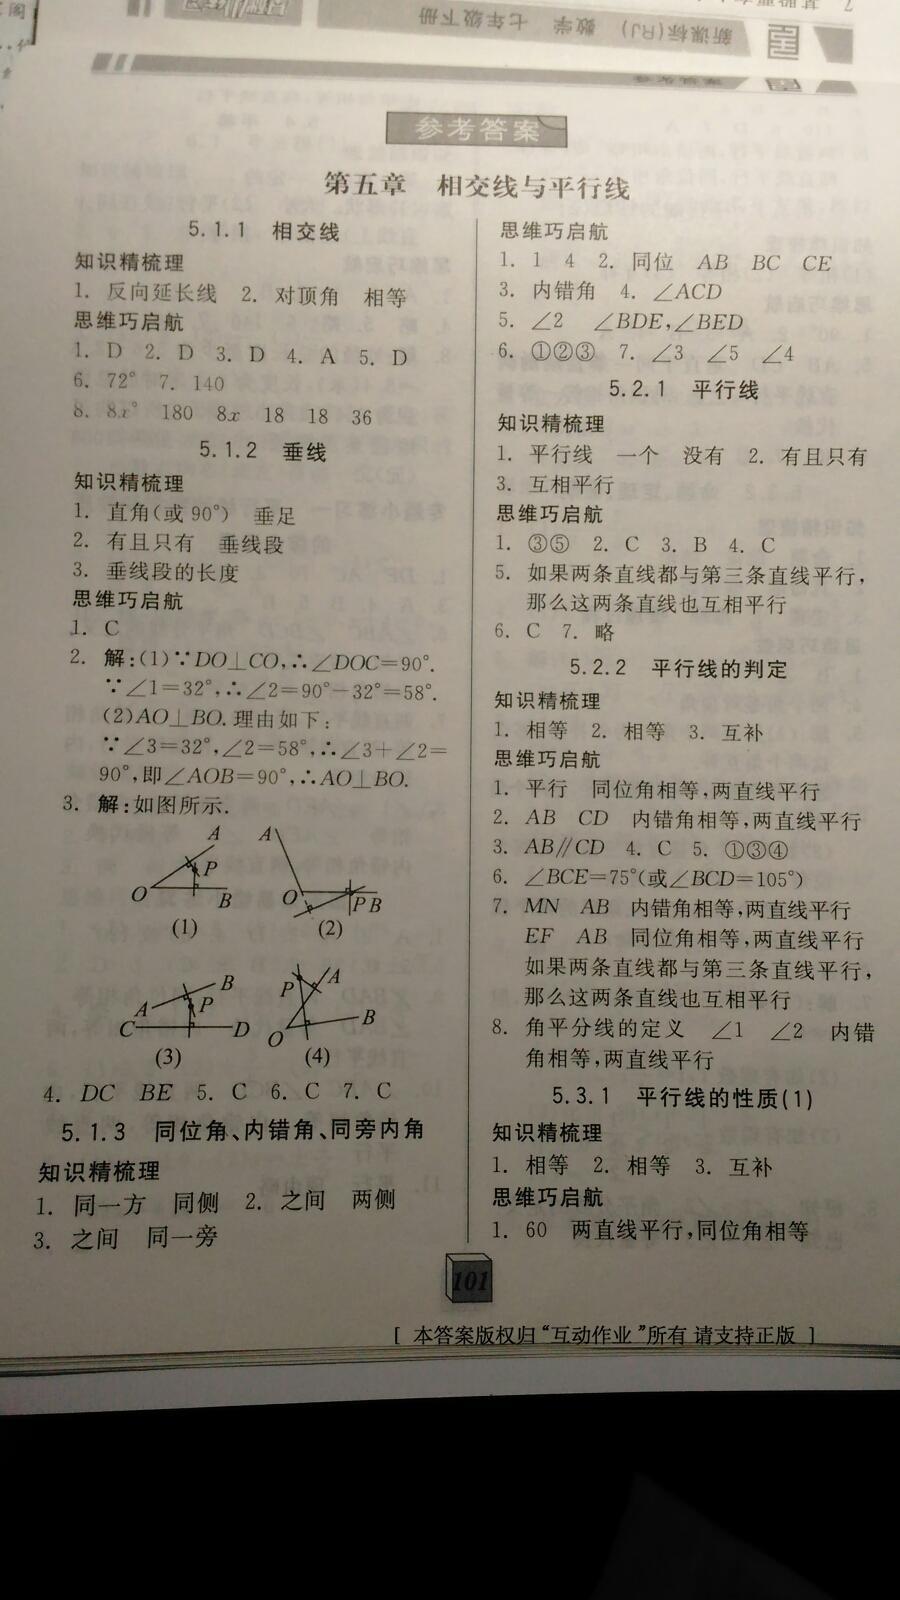 新课标(RJ) 数学 七年级下册
参考答案
第五章 相交线与平行线
5.1.1 相交线
知识精梳理
1. 反向延长线 2. 对顶角 相等
思维巧启航
1. D 2. D 3. D 4. A 5. D
6. 72° 7. 140
8. 8x° 180 8x 18 18 36
5.1.2 垂线
知识精梳理
1. 直角(或90°) 垂足
2. 有且只有 垂线段
3. 垂线段的长度
思维巧启航
1. C
2. 解:(1)∵DO⊥CO,∴∠DOC=90°.
∵∠1=32°,∴∠2=90°-32°=58°.
(2)AO⊥BO.理由如下:
∵∠3=32°,∠2=58°,∴∠3+∠2=
90°,即∠AOB=90°,∴AO⊥BO.
3. 解:如图所示.
A P O B
(1)
A O P B
(2)
A B P C D
(3)
P A B O
(4)
4. DC BE 5. C 6. C 7. C
5.1.3 同位角、内错角、同旁内角
知识精梳理
1. 同一方 同侧 2. 之间 两侧
3. 之间 同一旁
思维巧启航
1. 1 4 2. 同位 AB BC CE
3. 内错角 4. ∠ACD
5. ∠2 ∠BDE,∠BED
6. ①②③ 7. ∠3 ∠5 ∠4
5.2.1 平行线
知识精梳理
1. 平行线 一个 没有 2. 有且只有
3. 互相平行
思维巧启航
1. ③⑤ 2. C 3. B 4. C
5. 如果两条直线都与第三条直线平行,
那么这两条直线也互相平行
6. C 7. 略
5.2.2 平行线的判定
知识精梳理
1. 相等 2. 相等 3. 互补
思维巧启航
1. 平行 同位角相等,两直线平行
2. AB CD 内错角相等,两直线平行
3. AB∥CD 4. C 5. ①③④
6. ∠BCE=75°(或∠BCD=105°)
7. MN AB 内错角相等,两直线平行
EF AB 同位角相等,两直线平行
如果两条直线都与第三条直线平行,
那么这两条直线也互相平行
8. 角平分线的定义 ∠1 ∠2 内错
角相等,两直线平行
5.3.1 平行线的性质(1)
知识精梳理
1. 相等 2. 相等 3. 互补
思维巧启航
1. 60 两直线平行,同位角相等
101
[ 本答案版权归“互动作业”所有 请支持正版 ]